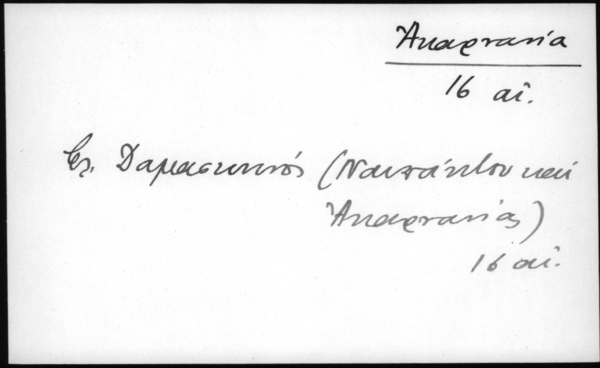 Ἀκαρνανία
16 αἰ.
Ἐπ. Δαμασκηνός (Ναυπάκτου καὶ
Ἀκαρνανίας)
16 αἰ.